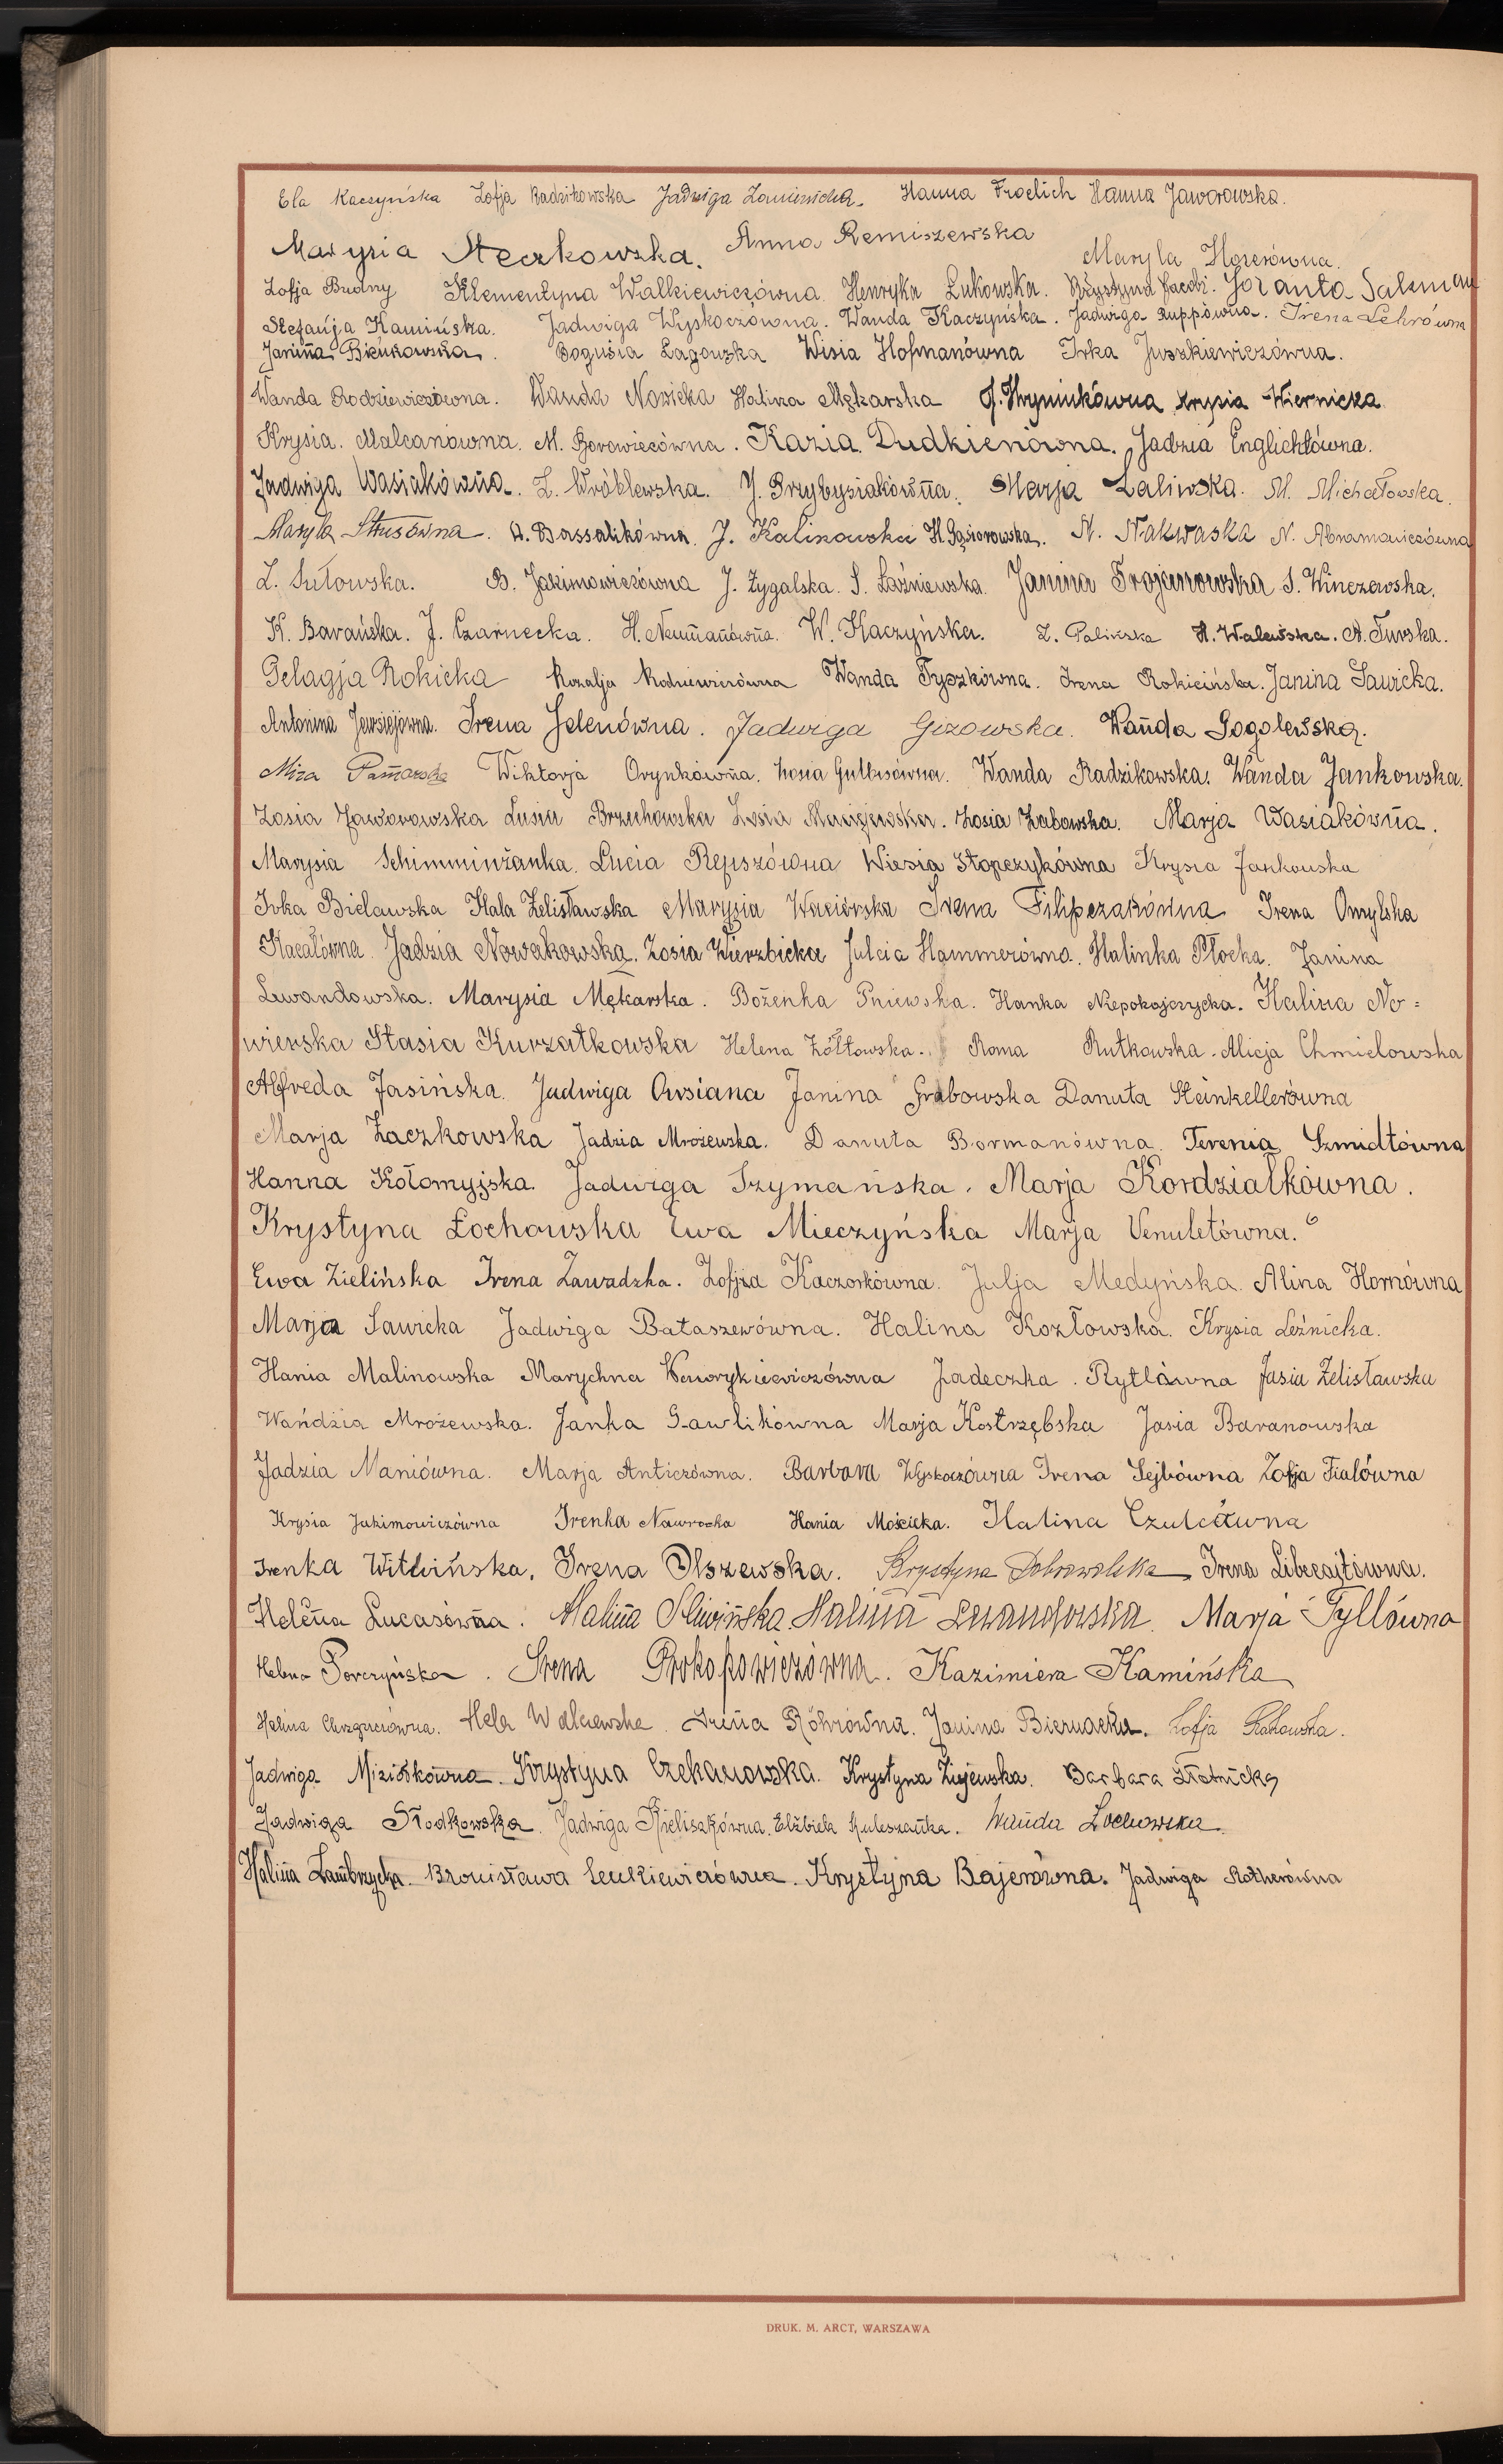 Ela Kaczyńska Zofja Radzikowska Jadwiga Hanna Froelich Hanna Jaworowska.
Marysia Steczkowska. Anna Remiszewska Maryla Hozerówna.
Zofja Budny Klementyna Walkiewiczówna. Henryka Łukowska. Krystyna Jacobi. Jolanta Salzman
Stefanja Kamińska. Jadwiga Wyskoczówna. Wanda Kaczyńska. Jadwiga Ruppówna. Irena Lehrówna
Janina Bieńkowska. Bogusia Łagowska Wisia Hofmanówna Irka Juszkiewiczówna.
Wanda Rodziewiczówna. Wanda Nowicka Halina Mękarska J. Hryniukówna Krysia Wiernicka
Krysia. Malcanówna. M. Borowiecówna. Kazia Dudkienówna. Jadzia Englichtówna.
Jadwiga Wasiakówna. Z. Wróblewska. J. Przybysiakówna. Marja Zaliwska. M. Michałowska.
Maryla Strusówna. W. Bassalikówna. J. Kalinowska H. Gąsiorowska. N. Nakwaska N. Abramowiczówna
Z. Sułowska. B. Jakimowiczówna J. Żygalska. S. Łaźniewska. Janina Trojanowska S. Winczewska.
K. Barańska. J. Czarnecka. H. Neumanówna. W. Kaczyńska. Z. Palińska H. Walewska. A. Turska.
Pelagja Rokicka Rozalja Wanda Tyszkówna. Irena Rokicińska. Janina Sawicka.
Antonina Jewsiejówna. Irena Jelenówna. Jadwiga Gizowska. Wanda Sogolewska.
Mira Wiktorja Orynkówna. Zosia Wanda Radzikowska. Wanda Jankowska.
Zosia Jaworowska Lusia Brzuchowska Zosia Maciejewska. Zosia Żabowska. Marja Wasiakówna.
Marysia Schimminżanka. Lucia Repszówna Wiesia Stopczykówna Krysia Jankowska
Irka Bielawska Hala Żelisławska Marysia Wąciórska Irena Filipczakówna Irena Omylska
Kacałówna. Jadzia Nowakowska. Zosia Wierzbicka Julcia Hammerówna. Halinka Płocka. Janina
Lewandowska. Marysia Mękarska. Bożenka Pniewska. Hanka Niepokojczycka. Halina No=
wierska Stasia Kurzątkowska Helena Żółtowska. Roma Rutkowska. Alicja Chmielowska
Alfreda Jasińska. Jadwiga Owsiana Janina Grabowska Danuta Steinkellerówna
Marja Żaczkowska Jadzia Mrożewska. Danuta Bormanówna. Terenia Szmidtówna
Hanna Kołomyjska. Jadwiga Szymańska. Marja Kordziałkówna.
Krystyna Łochowska Ewa Mieczyńska Marja Venuletówna.
Ewa Zielińska Irena Zawadzka. Zofja Kaczorkówna. Julja Medyńska. Alina Hornówna
Marja Sawicka Jadwiga Bałaszewówna. Halina Kozłowska. Krysia Leźnicka.
Hania Malinowska Marychna Wawrykiewiczówna Jadeczka. Rytlówna Jasia Żelisławska
Wańdzia Mrożewska. Janka Gawlikówna Marja Kostrzębska Jasia Baranowska
Jadzia Maniówna. Marja Anticzówna. Barbara Wyskoczówna Irena Sejbówna Zofja Fialówna
Krysia Jakimowiczówna Irenka Nawrocka Hania Mościcka. Halina Czulcówna
Irenka Witwińska. Irena Olszewska. Krystyna Dobrowolska Irena Libercajtówna.
Helena Lucasówna. Halina Śliwińska. Halina Lewandowska. Marja Tyllówna
Helena Porczyńska. Irena Prokopowiczówna. Kazimiera Kamińska
Halina Hela Walczewska. Irena Röhrówna. Janina Biernacka. Zofja
Jadwiga Miziołkówna. Krystyna Czekanowska. Krystyna Żujewska. Barbara Złotnicka
Jadwiga Słodkowska. Jadwiga Kieliszkówna. Elżbieta Kuleszanka. Wanda Żochowska.
Halina Zambrzycka. Bronisława Senkiewiczówna. Krystyna Bajerówna. Jadwiga Rotherówna
DRUK. M. ARCT, WARSZAWA